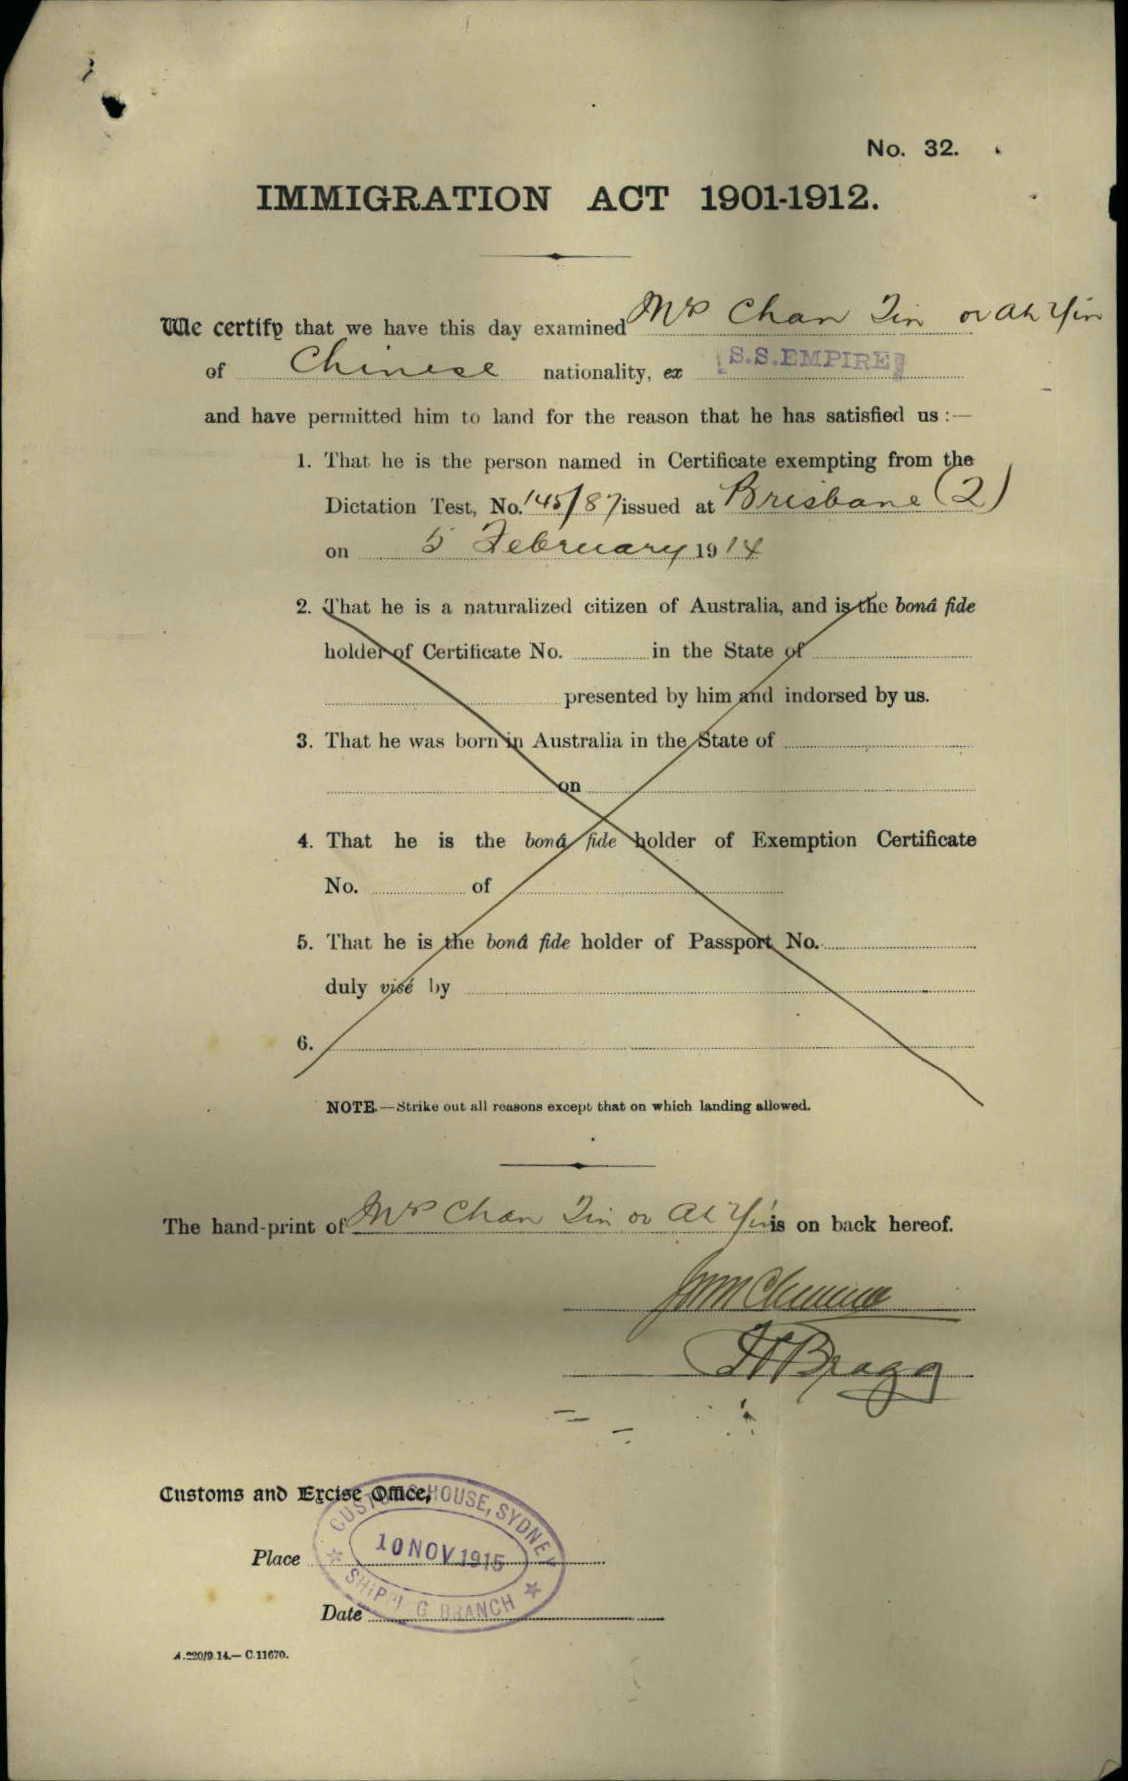 No. 32.
IMMIGRATION ACT 1901-1912.
We certify that we have this day examined Mrs Chan Tin or Ah Yin
of Chinese nationality, ex S.S. EMPIRE
and have permitted him to land for the reason that he has satisfied us :—
1. That he is the person named in Certificate exempting from the
Dictation Test, No. 145/87 issued at Brisbane (2)
on 5 February 1914
2. That he is a naturalized citizen of Australia, and is the bonâ fide
holder of Certificate No. in the State of
presented by him and indorsed by us.
3. That he was born in Australia in the State of
on
4. That he is the bonâ fide holder of Exemption Certificate
No. of
5. That he is the bonâ fide holder of Passport No.
duly visé by
6.
NOTE.—Strike out all reasons except that on which landing allowed.
The hand-print of Mrs Chan Tin or Ah Yin is on back hereof.
Bragg
Customs and Excise Office,
CUSTOMS HOUSE, SYDNEY
Place
10 NOV 1915
SHIPPING BRANCH
Date
A.220/9.14.—C.11670.